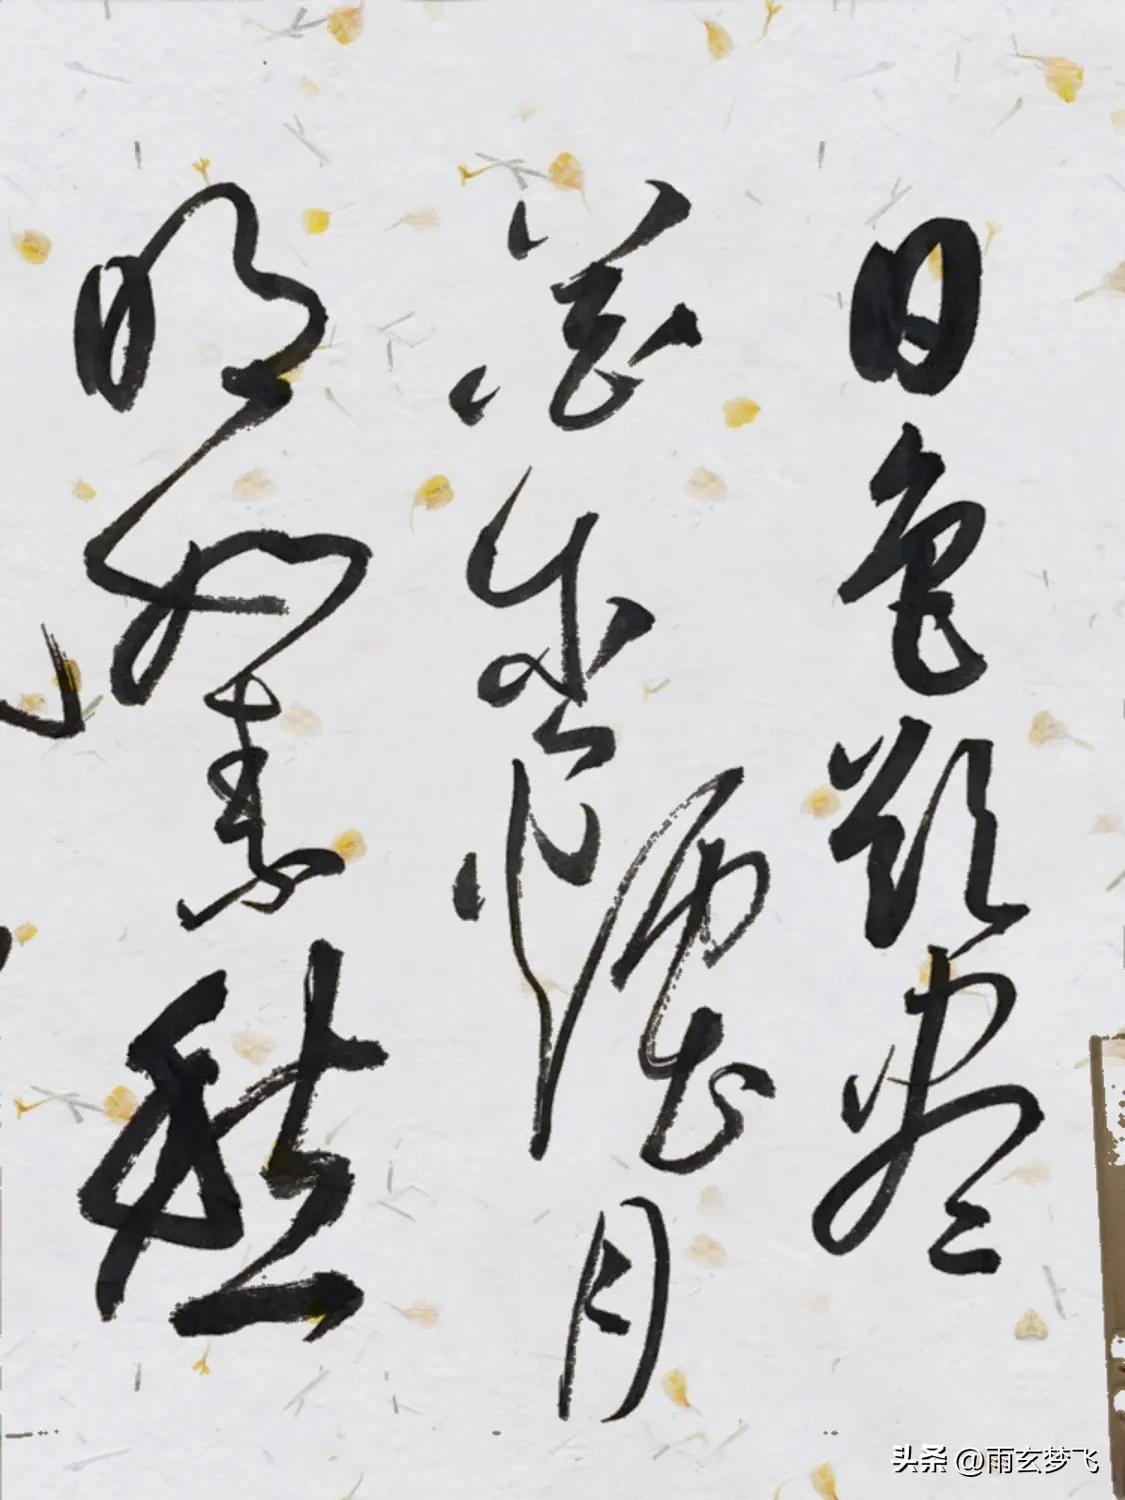 日色欲尽
花含煙月
明如素愁
头条 @雨玄梦飞